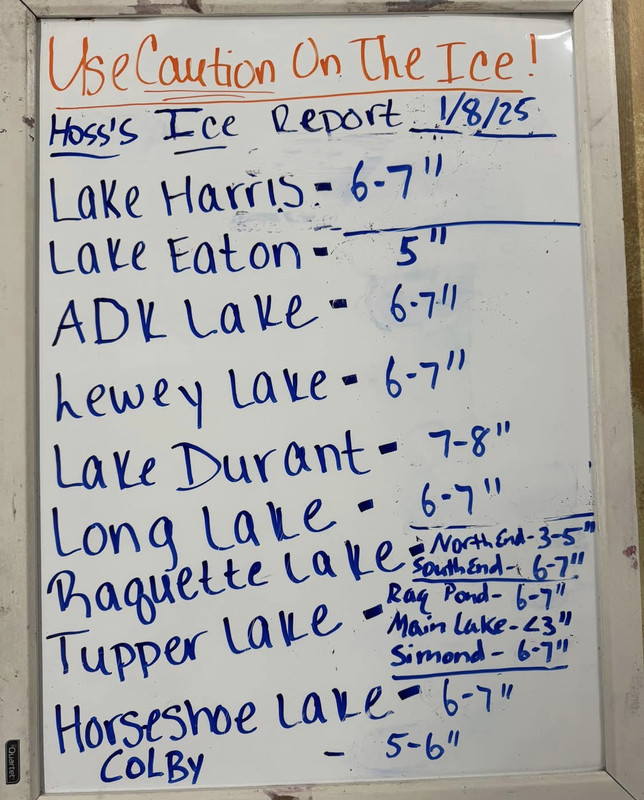 Use Caution On The Ice!
Hoss's Ice Report 1/8/25
Lake Harris - 6-7"
Lake Eaton - 5"
ADK Lake - 6-7"
Lewey Lake - 6-7"
Lake Durant - 7-8"
Long Lake - 6-7"
Raquette Lake - North End - 3-5"
South End - 6-7"
Tupper Lake - Raq Pond - 6-7"
Main Lake - <3"
Simond - 6-7"
Horseshoe Lake - 6-7"
COLBY - 5-6"
Quartet